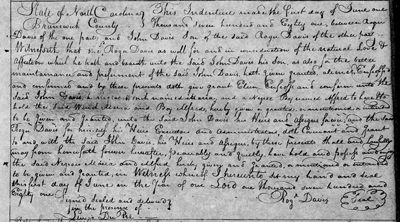 State of North Carolina This Indenture made the first day of June one
Brunswick County Thousand seven hundred and Eighty one, between Roger
Davis of the one part and John Davis Son of the said Roger Davis of the other part
Witnesseth that the Roger Davis as well for and in consideration of the natural Love &
affection which he hath and beareth unto the said John Davis his Son, as also for the better
maintainance and preferment of the said John Davis, hath given granted, aliened, Enfeoffed
and confirmed and by these presents doth give grant Alien Enfeoff and confirm unto the
said John Davis
hold the said Wench
to be given and granted, unto the said John Davis his Heirs and assigns forever, and the said
Roger Davis for himself his Heirs Executors and Administrators, doth Covenant and grant
to and with the said John Davis, his Heirs and Assigns, by these presents shall and lawfully
may from henceforth forever peaceably and quietly have hold and possess and enjoy
the said Negroes and Alfred, hereby
to be given and granted, in Witness whereof I hereunto set my hand and seal
this first day of June in the Year of our Lord one thousand seven hundred and
Eighty one Rogr Davis Seal
Signed Sealed and delivered
in the presence of